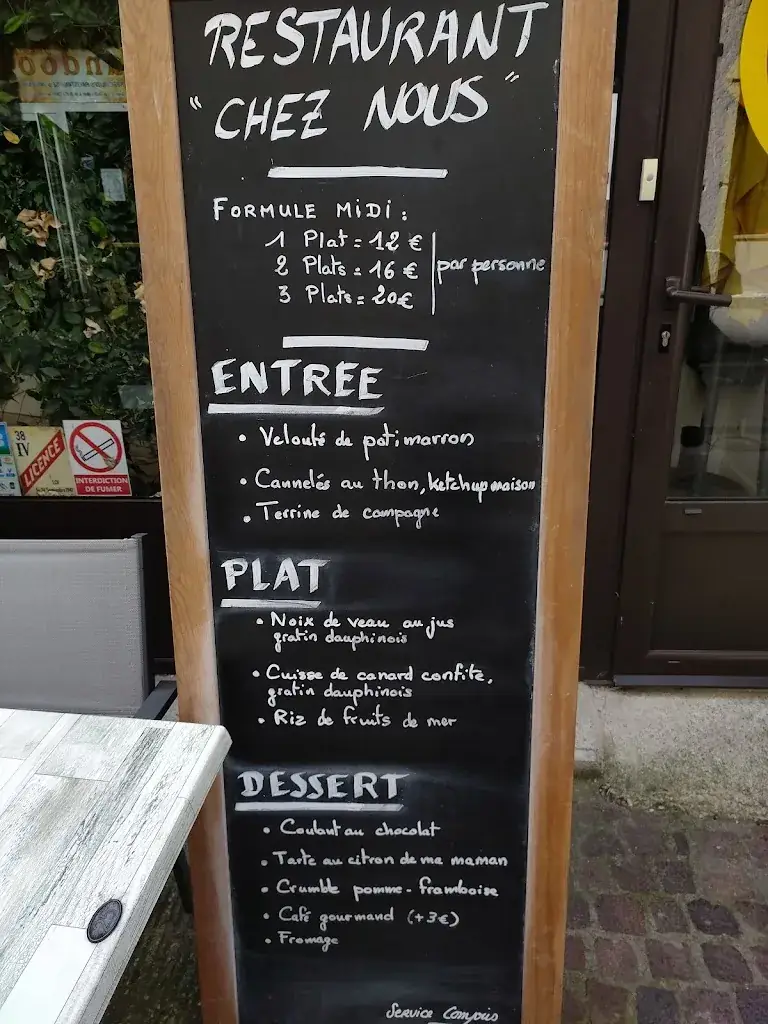 RESTAURANT
"CHEZ NOUS"
FORMULE MIDI :
1 Plat = 12 €
2 Plats = 16 €
3 Plats = 20€
par personne
ENTREE
• Velouté de potimarron
• Cannelés au thon, ketchup maison
• Terrine de campagne
PLAT
• Noix de veau au jus
gratin dauphinois
• Cuisse de canard confite,
gratin dauphinois
• Riz de fruits de mer
DESSERT
• Coulant au chocolat
• Tarte au citron de ma maman
• Crumble pomme - framboise
• Café gourmand (+3€)
• Fromage
Service Compris
38
IV
LICENCE
INTERDICTION
DE FUMER